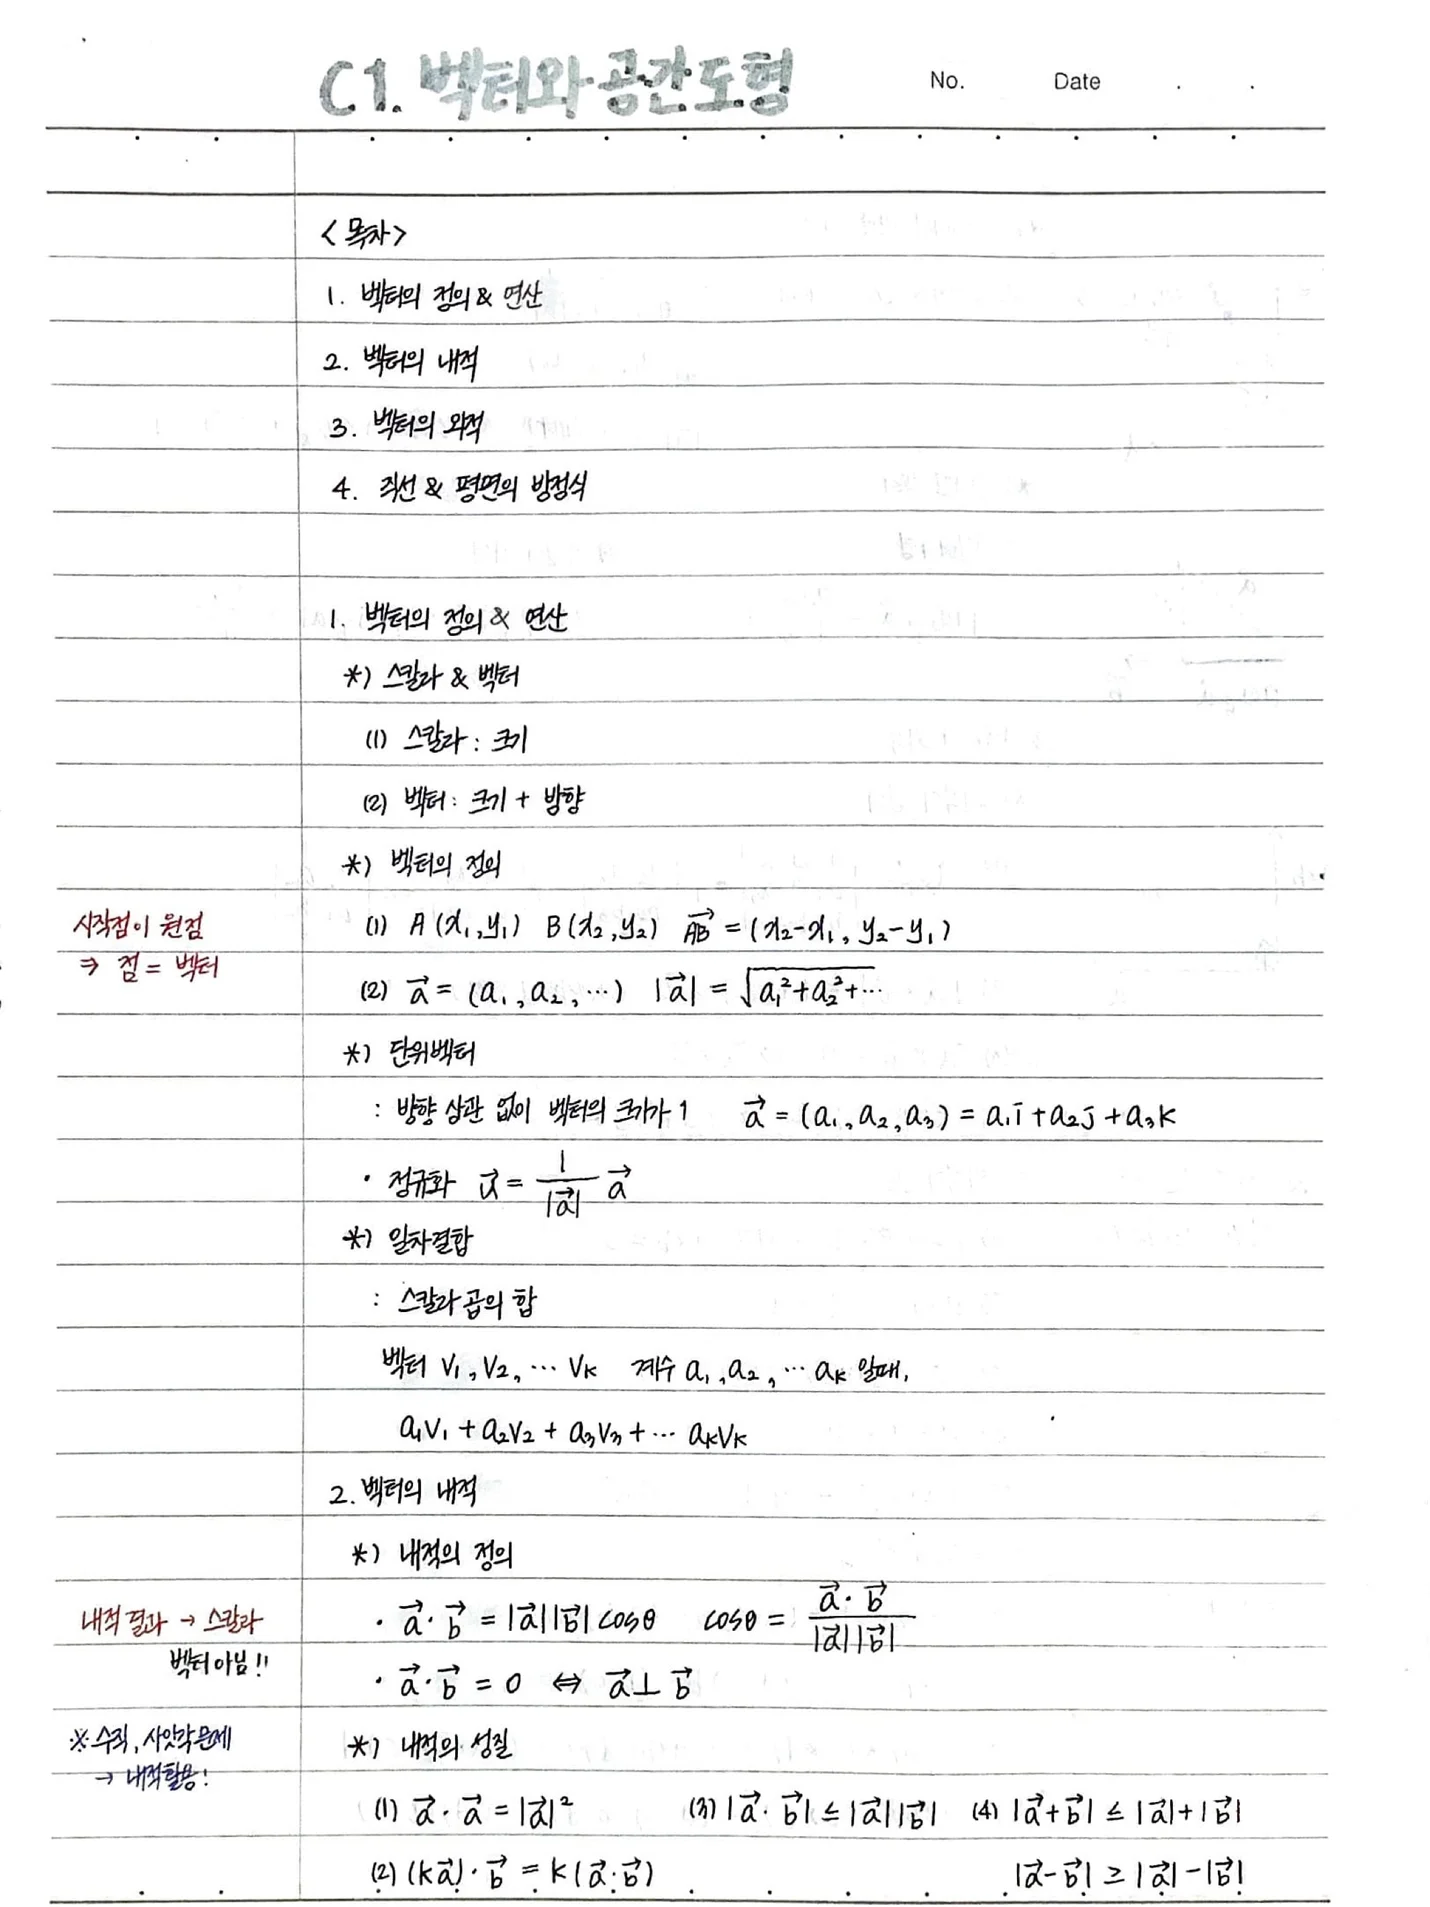 C1. 벡터와 공간도형
No. Date . .
<목차>
1. 벡터의 정의 & 연산
2. 벡터의 내적
3. 벡터의 외적
4. 직선 & 평면의 방정식
1. 벡터의 정의 & 연산
*) 스칼라 & 벡터
(1) 스칼라 : 크기
(2) 벡터 : 크기 + 방향
*) 벡터의 정의
시작점이 원점
⇒ 점 = 벡터
(1) A(x₁,y₁) B(x₂,y₂) \vec{AB} = (x₂-x₁, y₂-y₁)
(2) \vec{a} = (a₁, a₂, ⋯) |\vec{a}| = √(a₁²+a₂²+⋯)
*) 단위벡터
: 방향 상관 없이 벡터의 크기가 1 \vec{a} = (a₁, a₂, a₃) = a₁i + a₂j + a₃k
· 정규화 \vec{u} = \frac{1}{|\vec{a}|} \vec{a}
*) 일차결합
: 스칼라 곱의 합
벡터 V₁, V₂, ⋯ Vₖ 계수 a₁, a₂, ⋯ aₖ 일때,
a₁V₁ + a₂V₂ + a₃V₃ + ⋯ aₖVₖ
2. 벡터의 내적
*) 내적의 정의
내적 결과 → 스칼라
벡터 아님!!
· \vec{a}·\vec{b} = |\vec{a}||\vec{b}| cosθ cosθ = \frac{\vec{a}·\vec{b}}{|\vec{a}||\vec{b}|}
· \vec{a}·\vec{b} = 0 ⇔ \vec{a} ⊥ \vec{b}
※ 수직, 사잇각 문제
→ 내적 활용!
*) 내적의 성질
(1) \vec{a}·\vec{a} = |\vec{a}|² (3) |\vec{a}·\vec{b}| ≤ |\vec{a}||\vec{b}| (4) |\vec{a}+\vec{b}| ≤ |\vec{a}|+|\vec{b}|
(2) (k\vec{a})·\vec{b} = k(\vec{a}·\vec{b}) |\vec{a}-\vec{b}| ≥ |\vec{a}|-|\vec{b}|